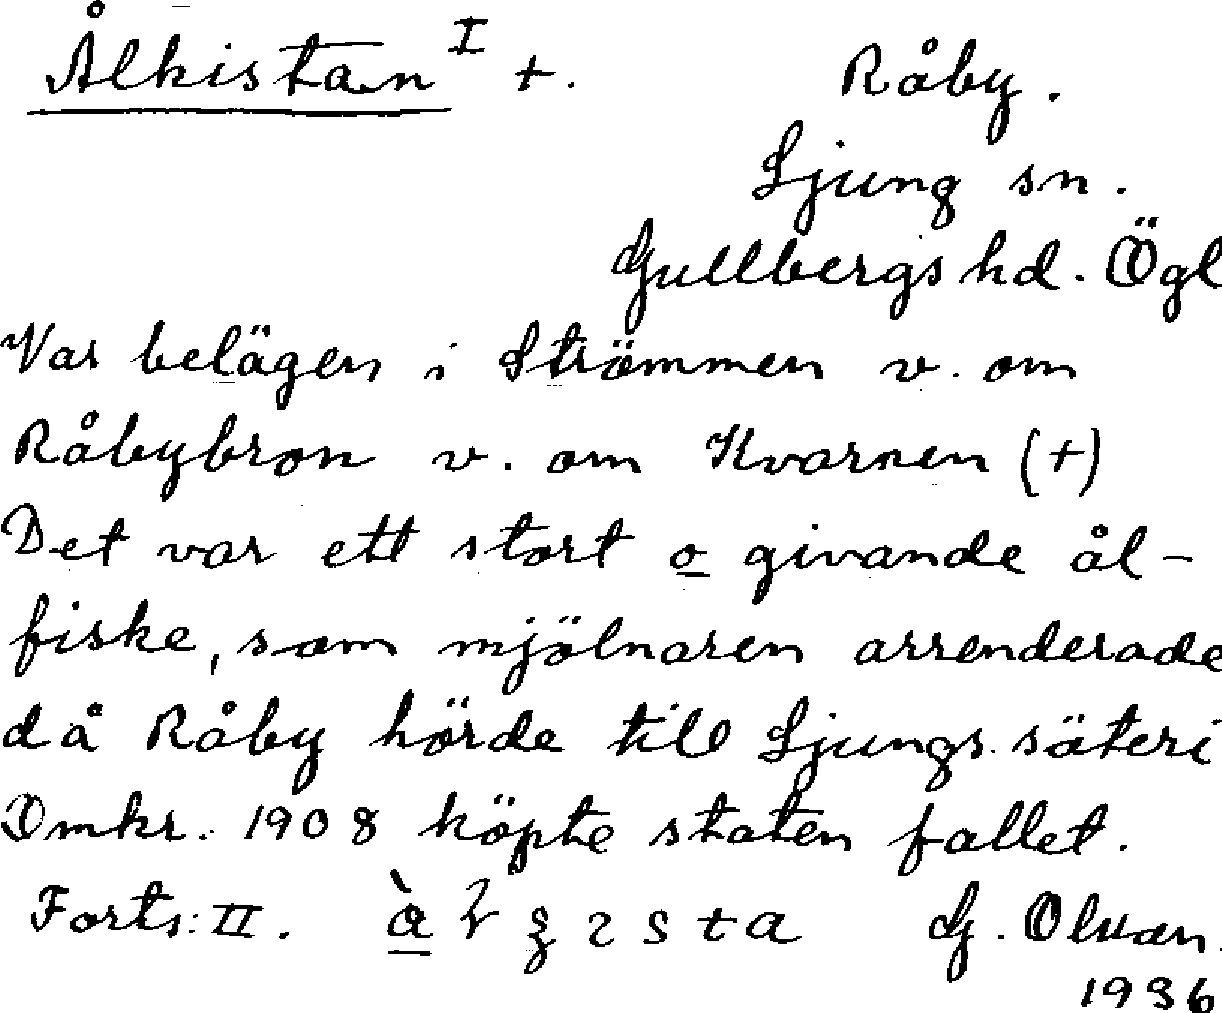 Ålkistan I +. Råby.
Ljung sn.
Gullbergs hd. Ögl
Var belägen i Strömmen v. om
Råbybron v. om Kvarnen (+)
Det var ett stort o givande ål-
fiske, som mjölnaren arrenderade
då Råby hörde till Ljungs säteri
Omkr. 1908 köpte staten fallet.
Forts: II. G.
1936